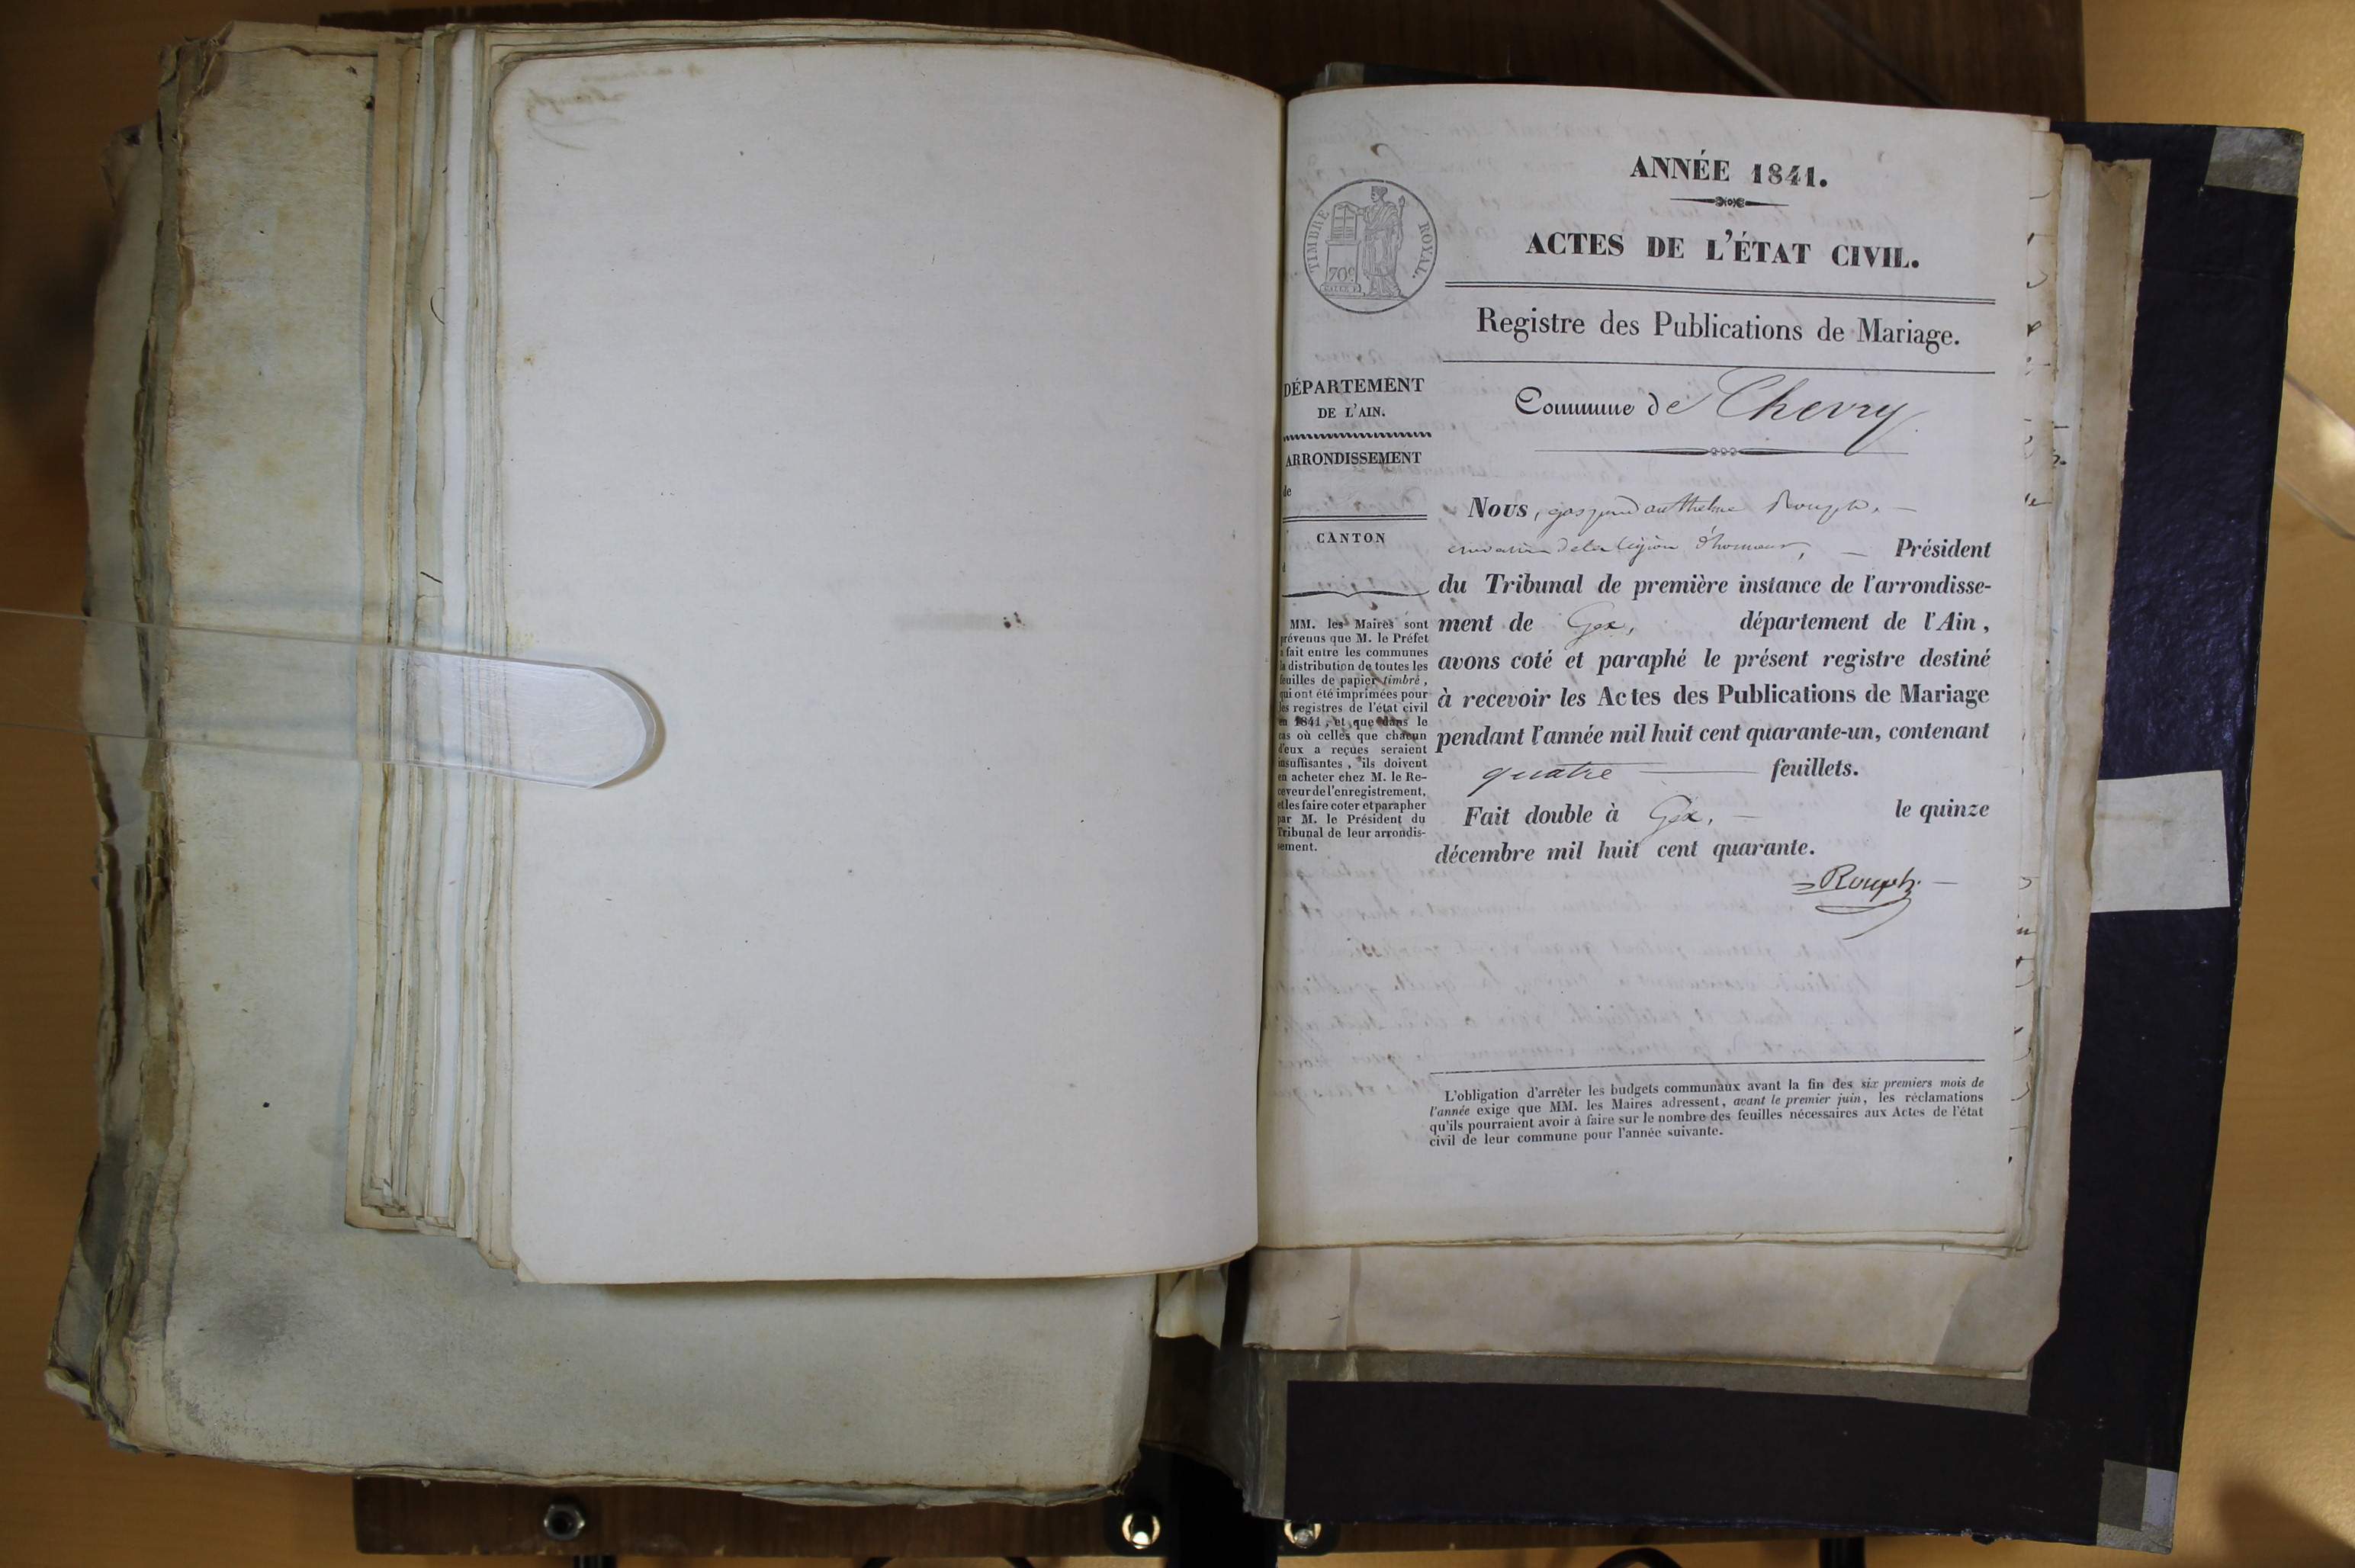 ANNÉE 1841.
TIMBRE ROYAL.
ACTES DE L'ÉTAT CIVIL.
Registre des Publications de Mariage.
DÉPARTEMENT
DE L'AIN.
ARRONDISSEMENT
de
CANTON
MM. les Maires sont
prévenus que M. le Préfet
a fait entre les communes
la distribution de toutes les
feuilles de papier timbré,
qui ont été imprimées pour
les registres de l'état civil
en 1841, et que dans le
cas où celles que chacun
d'eux a reçues seraient
insuffisantes, ils doivent
en acheter chez M. le Re-
ceveur de l'enregistrement,
et les faire coter et parapher
par M. le Président du
Tribunal de leur arrondis-
sement.
Commune de Chevry
Nous, gaspard anthelme Rouph,
de la légion d'honneur, Président
du Tribunal de première instance de l'arrondisse-
ment de Gex, département de l'Ain,
avons coté et paraphé le présent registre destiné
à recevoir les Actes des Publications de Mariage
pendant l'année mil huit cent quarante-un, contenant
quatre feuillets.
Fait double à Gex, le quinze
décembre mil huit cent quarante.
Rouph
L'obligation d'arrêter les budgets communaux avant la fin des six premiers mois de
l'année exige que MM. les Maires adressent, avant le premier juin, les réclamations
qu'ils pourraient avoir à faire sur le nombre des feuilles nécessaires aux Actes de l'état
civil de leur commune pour l'année suivante.